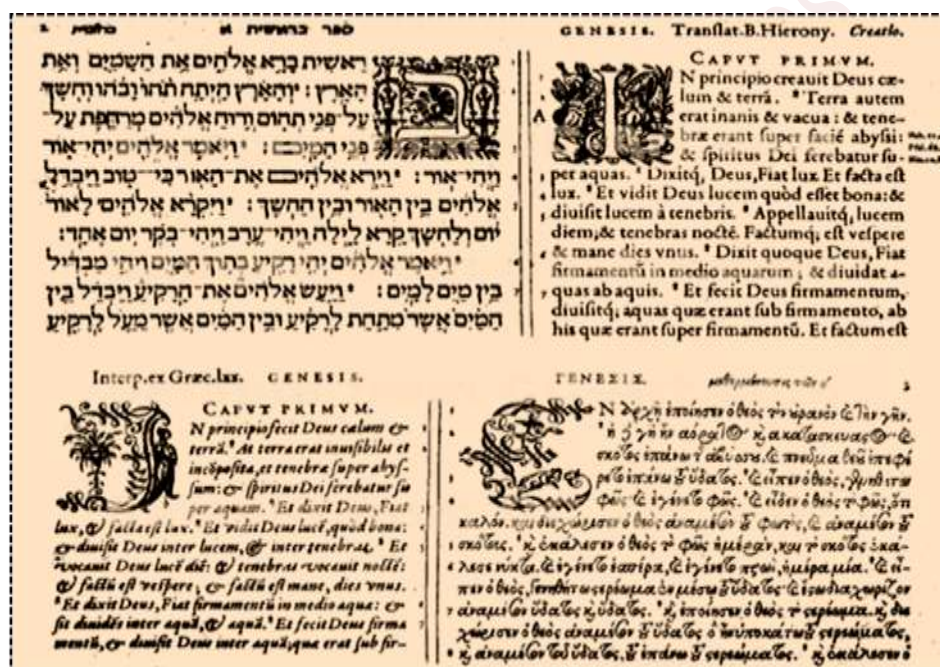 ספר בראשית א
ראשית ברא אלהים את השמים ואת
הארץ: והארץ היתה תהו ובהו וחשך
על־פני תהום ורוח אלהים מרחפת על־
פני המים: ויאמר אלהים יהי־אור
ויהי־אור: וירא אלהים את־האור כי־טוב ויבדל
אלהים בין האור ובין החשך: ויקרא אלהים לאור
יום ולחשך קרא לילה ויהי־ערב ויהי־בקר יום אחד:
ויאמר אלהים יהי רקיע בתוך המים ויהי מבדיל
בין מים למים: ויעש אלהים את־הרקיע ויבדל בין
המים אשר מתחת לרקיע ובין המים אשר מעל לרקיע
GENESIS. Translat.B.Hierony. Creatio.
CAPVT PRIMVM.
IN principio creauit Deus cæ-
lum & terrā. Terra autem
A erat inanis & vacua: & tene-
bræ erant super faciē abyssi:
& spiritus Dei ferebatur su-
per aquas. Dixitq́, Deus, Fiat lux. Et facta est
lux. Et vidit Deus lucem quòd esset bona: &
diuisit lucem à tenebris. Appellauitq́, lucem
diem, & tenebras noctē. Factumq́; est vespere
& mane dies vnus. Dixit quoque Deus, Fiat
firmamentū in medio aquarum; & diuidat a-
quas ab aquis. Et fecit Deus firmamentum,
diuisitq́; aquas quæ erant sub firmamento, ab
his quæ erant super firmamentū. Et factum est
Interp.ex Græc.lxx. GENESIS.
CAPVT PRIMVM.
IN principio fecit Deus cælum &
terrā. At terra erat inuisibilis et
incōposita, et tenebræ super abys-
sum: & spiritus Dei ferebatur su
per aquam. Et dixit Deus, Fiat
lux, & facta est lux. Et vidit Deus lucē, quòd bona:
& diuisit Deus inter lucem, & inter tenebras. Et
vocauit Deus lucē diē: & tenebras vocauit noctē:
& factū est vespere, & factū est mane, dies vnus.
Et dixit Deus, Fiat firmamentū in medio aquæ: &
sit diuidēs inter aquā, & aquā. Et fecit Deus firma
mentū, & diuisit Deus inter aquā, quæ erat sub fir-
ΓΕΝΕΣΙΣ. 3
ΕΝ ἀρχῇ ἐποίησεν ὁ θεὸς τὸν οὐρανὸν καὶ τὴν γῆν.
ἡ δὲ γῆ ἦν ἀόρατος καὶ ἀκατασκεύαστος, καὶ
σκότος ἐπάνω τ ἀβύσσου, καὶ πνεῦμα θεοῦ ἐπεφέ
ρετο ἐπάνω τοῦ ὕδατος. καὶ εἶπεν ὁ θεὸς, γενηθήτω
φῶς, καὶ ἐγένετο φῶς. καὶ εἶδεν ὁ θεὸς τὸ φῶς, ὅτι
καλόν. καὶ διεχώρισεν ὁ θεὸς ἀναμέσον τοῦ φωτὸς, καὶ ἀναμέσον τοῦ
σκότους. καὶ ἐκάλεσεν ὁ θεὸς τὸ φῶς ἡμέραν, καὶ τὸ σκότος ἐκά-
λεσε νύκτα. καὶ ἐγένετο ἑσπέρα, καὶ ἐγένετο πρωῒ, ἡμέρα μία. καὶ εἶ-
πεν ὁ θεὸς, γενηθήτω στερέωμα ἐν μέσῳ τοῦ ὕδατος, καὶ ἔστω διαχωρίζον
ἀναμέσον ὕδατος καὶ ὕδατος. καὶ ἐποίησεν ὁ θεὸς τὸ στερέωμα. καὶ διε
χώρισεν ὁ θεὸς ἀναμέσον τοῦ ὕδατος ὃ ἦν ὑποκάτω τοῦ στερεώματος,
καὶ ἀναμέσον τοῦ ὕδατος τοῦ ἐπάνω τοῦ στερεώματος. καὶ ἐκάλεσεν ὁ